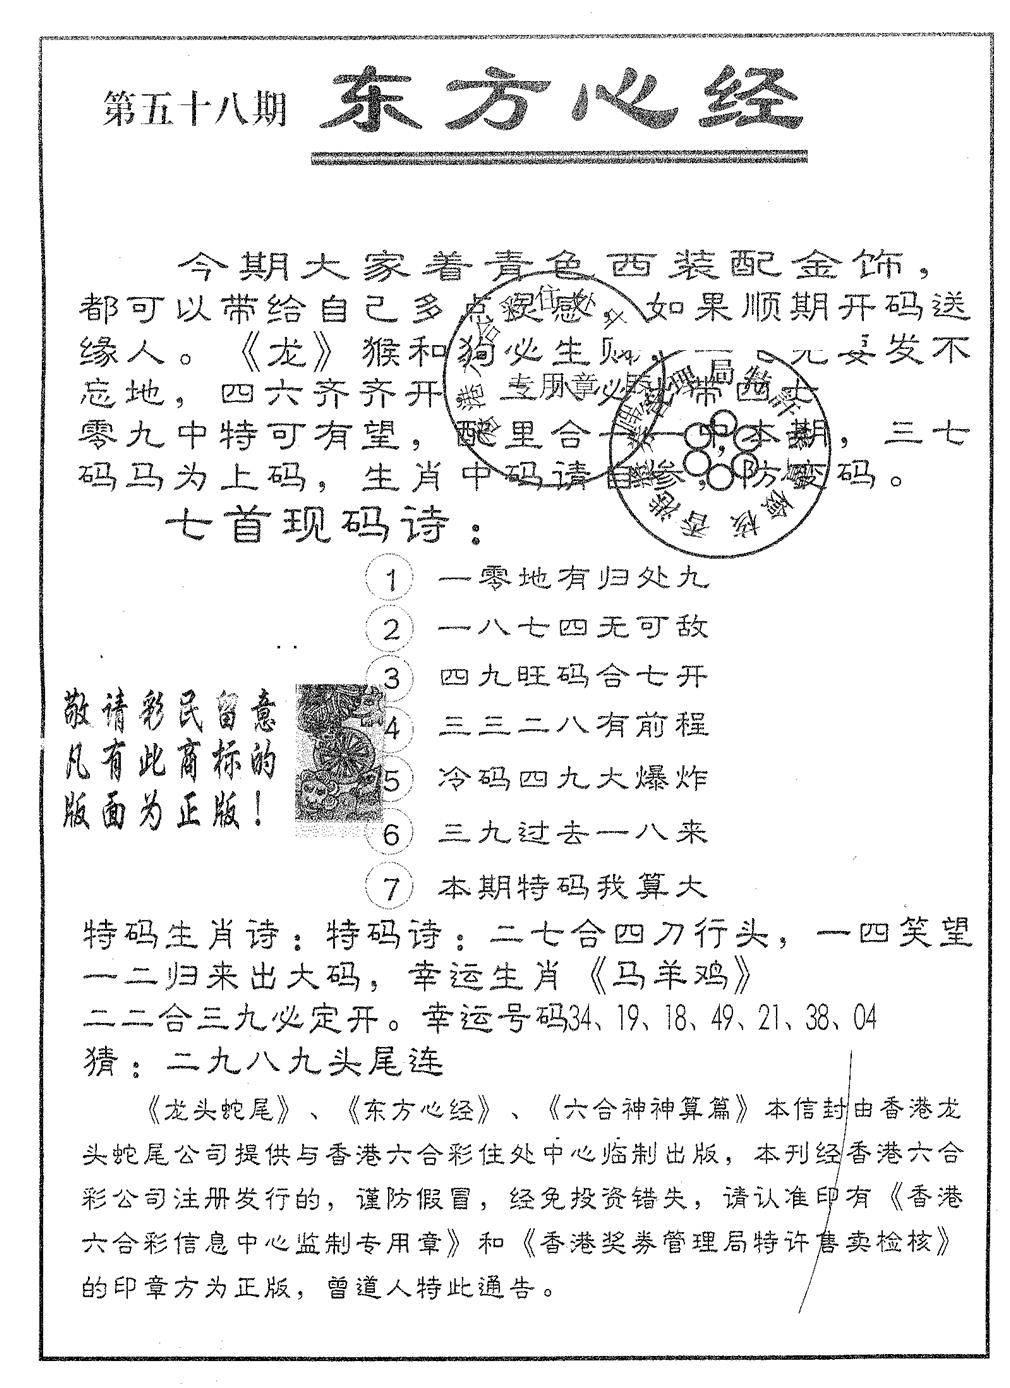 第五十八期 东方心经
今期大家着青色西装配金饰，
都可以带给自己多点灵感。如果顺期开码送
缘人。《龙》猴和狗必生财，发不
忘地，四六齐齐开
零九中特可有望，里合本期，三七
码马为上码，生肖中码请自参，防变码。
七首现码诗：
① 一零地有归处九
② 一八七四无可敌
③ 四九旺码合七开
④ 三三二八有前程
⑤ 冷码四九大爆炸
⑥ 三九过去一八来
⑦ 本期特码我算大
敬请彩民留意
凡有此商标的
版面为正版！
特码生肖诗：特码诗：二七合四刀行头，一四笑望
一二归来出大码，幸运生肖《马羊鸡》
二二合三九必定开。幸运号码34、19、18、49、21、38、04
猜：二九八九头尾连
《龙头蛇尾》、《东方心经》、《六合神神算篇》本信封由香港龙
头蛇尾公司提供与香港六合彩住处中心临制出版，本刊经香港六合
彩公司注册发行的，谨防假冒，经免投资错失，请认准印有《香港
六合彩信息中心监制专用章》和《香港奖券管理局特许售卖检核》
的印章方为正版，曾道人特此通告。
专用章